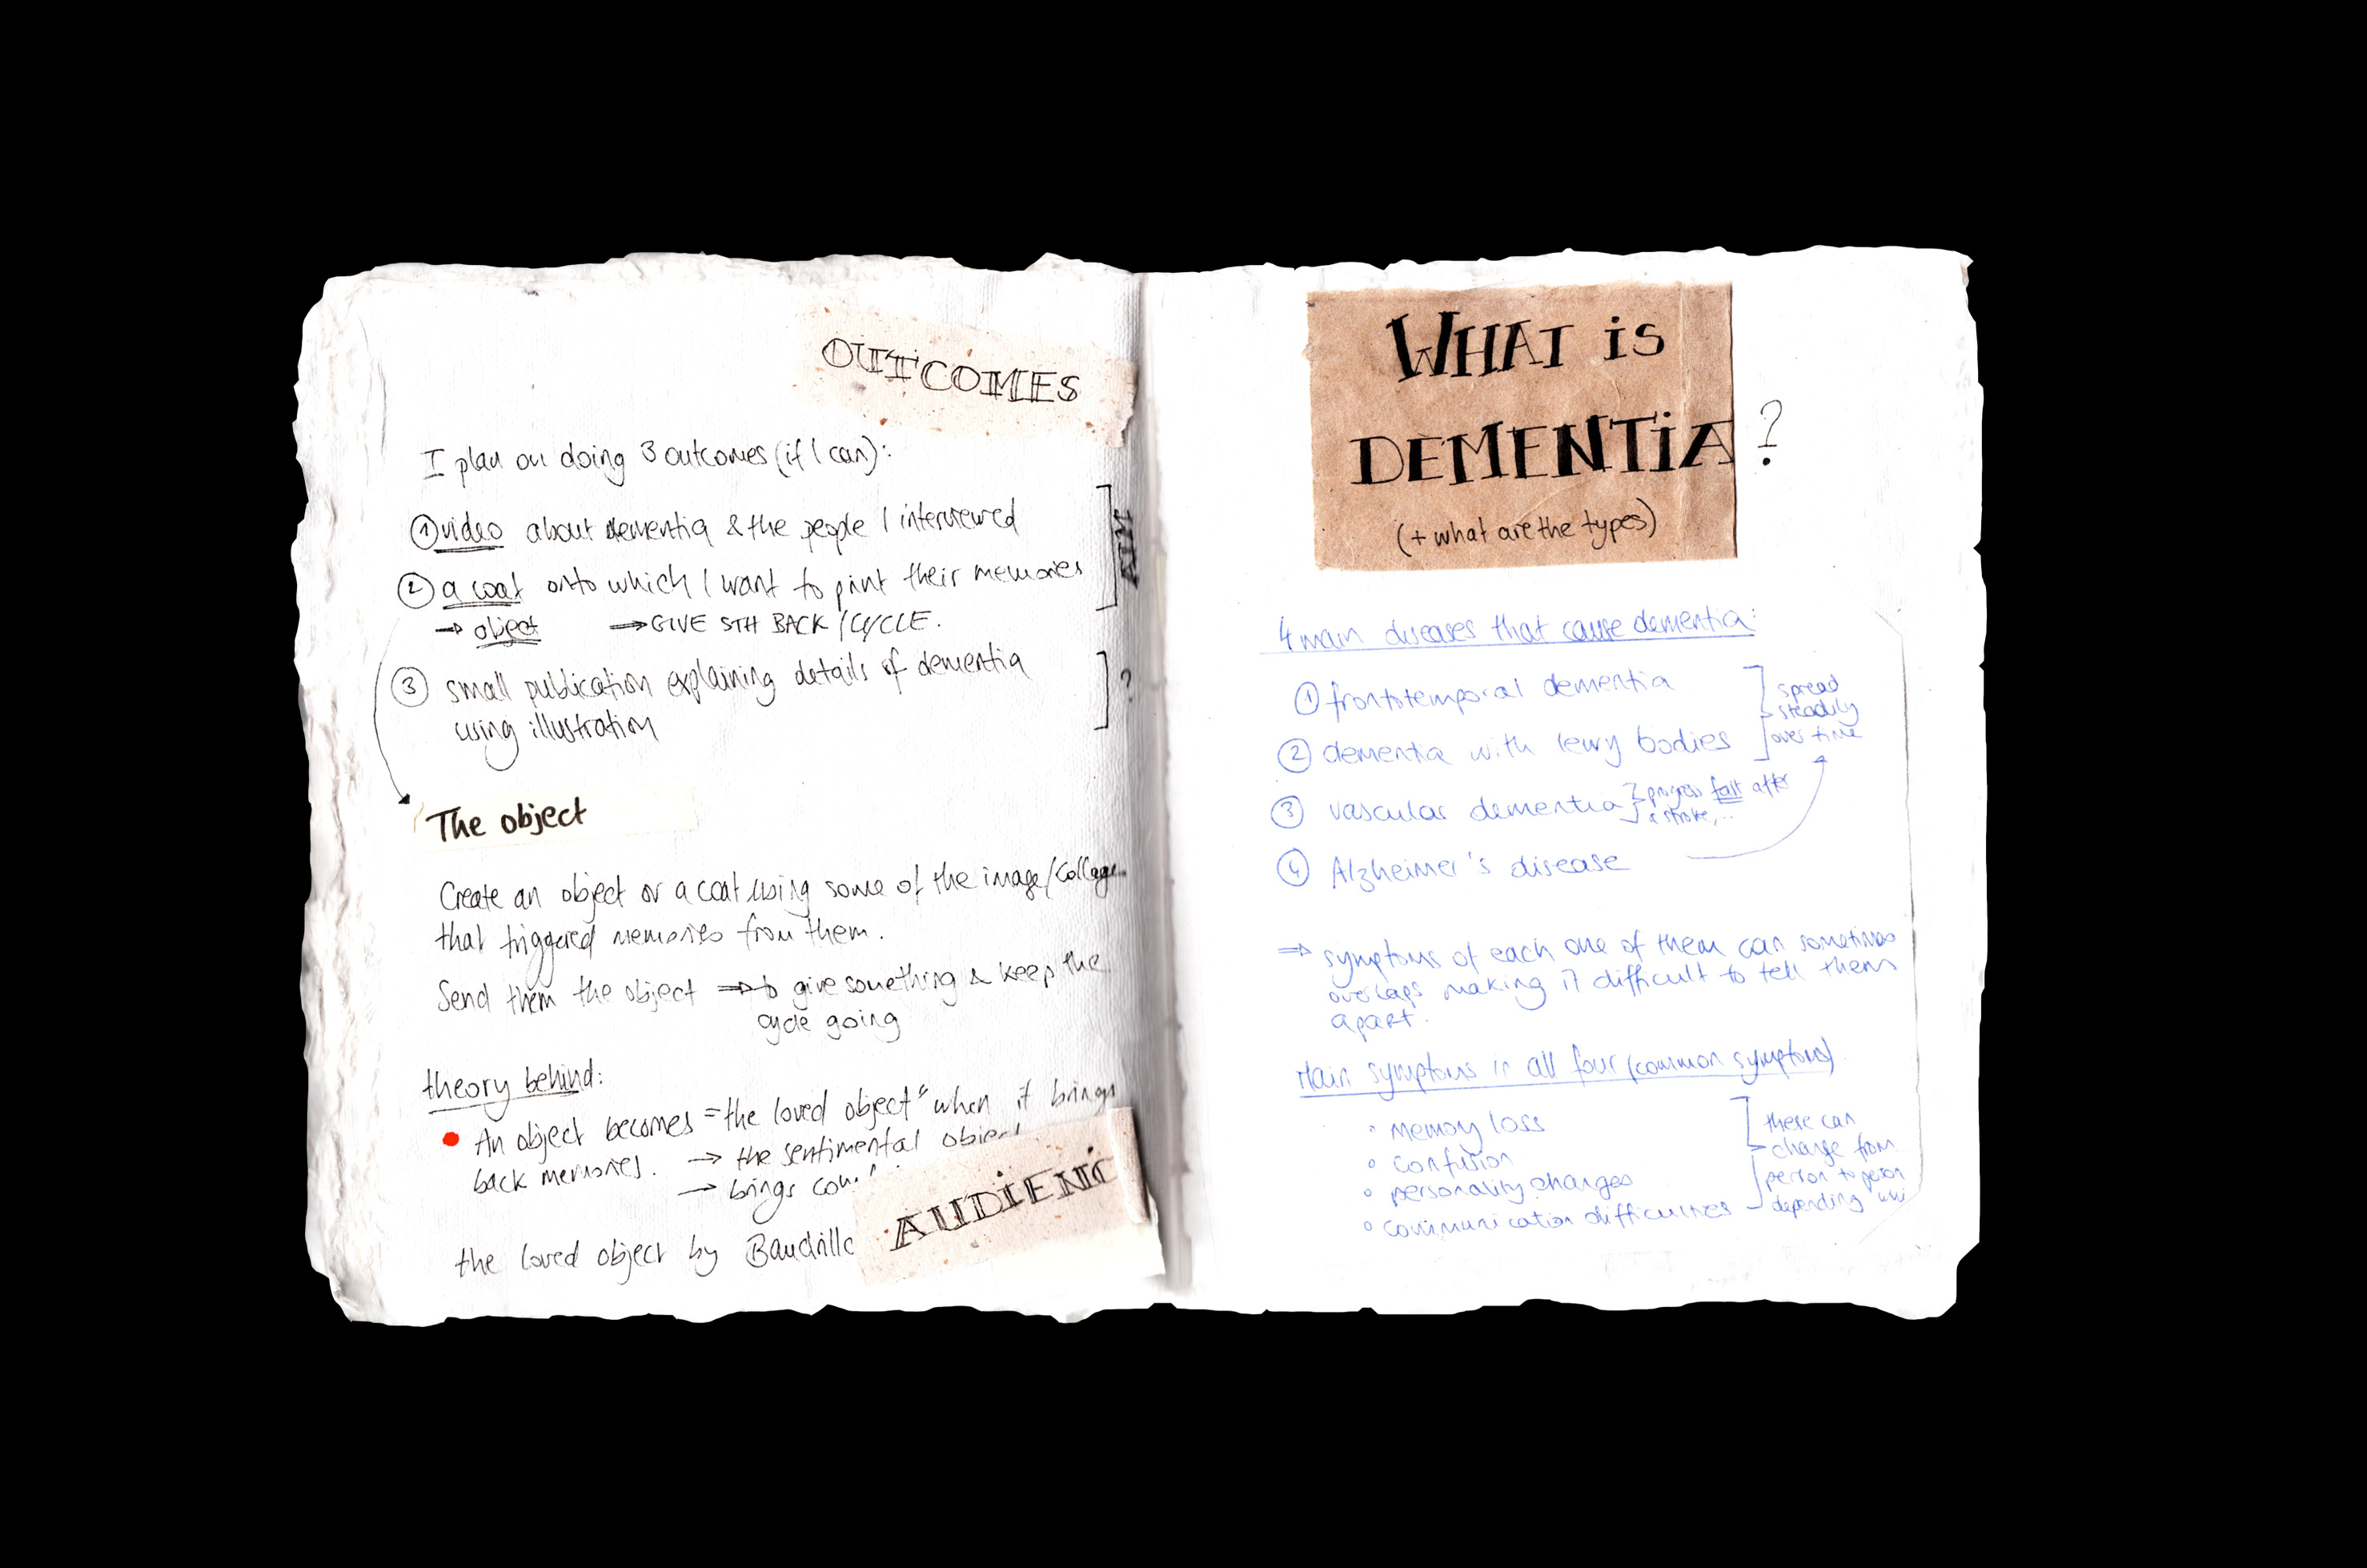 OUTCOMES
I plan on doing 3 outcomes (if I can):
① video about dementia & the people I interviewed
② a coat onto which I want to print their memories
→ object → GIVE STH BACK / CYCLE.
AIM
③ small publication explaining details of dementia
using illustration
?
The object
Create an object or a coat using some of the image/collage
that triggered memories from them.
Send them the object → to give something & keep the
cycle going
theory behind:
• An object becomes "the loved object" when it brings
back memories. → the sentimental object
→ brings
the loved object by
AUDIENC
WHAT is
DEMENTiA ?
(+ what are the types)
4 main diseases that cause dementia:
① frontotemporal dementia
② dementia with lewy bodies
spread
steadily
over time
③ vascular dementia
progress fast after
a stroke,...
④ Alzheimer's disease
⇒ symptoms of each one of them can sometimes
overlaps making it difficult to tell them
apart.
Main symptoms in all four (common symptoms)
◦ memory loss
◦ confusion
◦ personality changes
◦ communication difficulties
these can
change from
person to person
depending